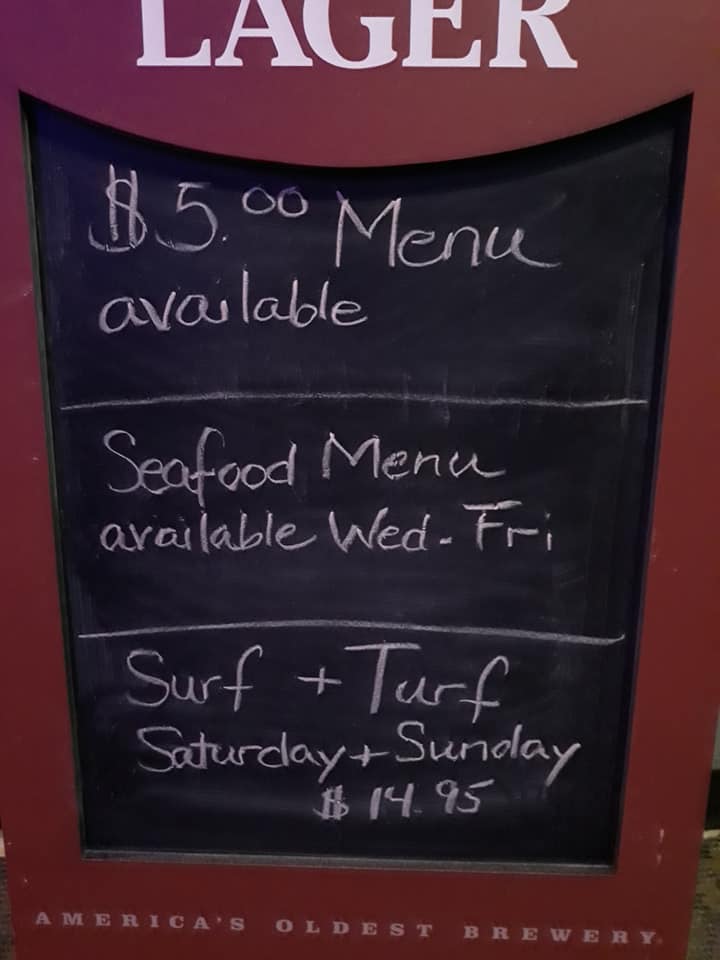 LAGER
$5.00 Menu
available
Seafood Menu
available Wed-Fri
Surf + Turf
Saturday + Sunday
$14.95
AMERICA'S OLDEST BREWERY.